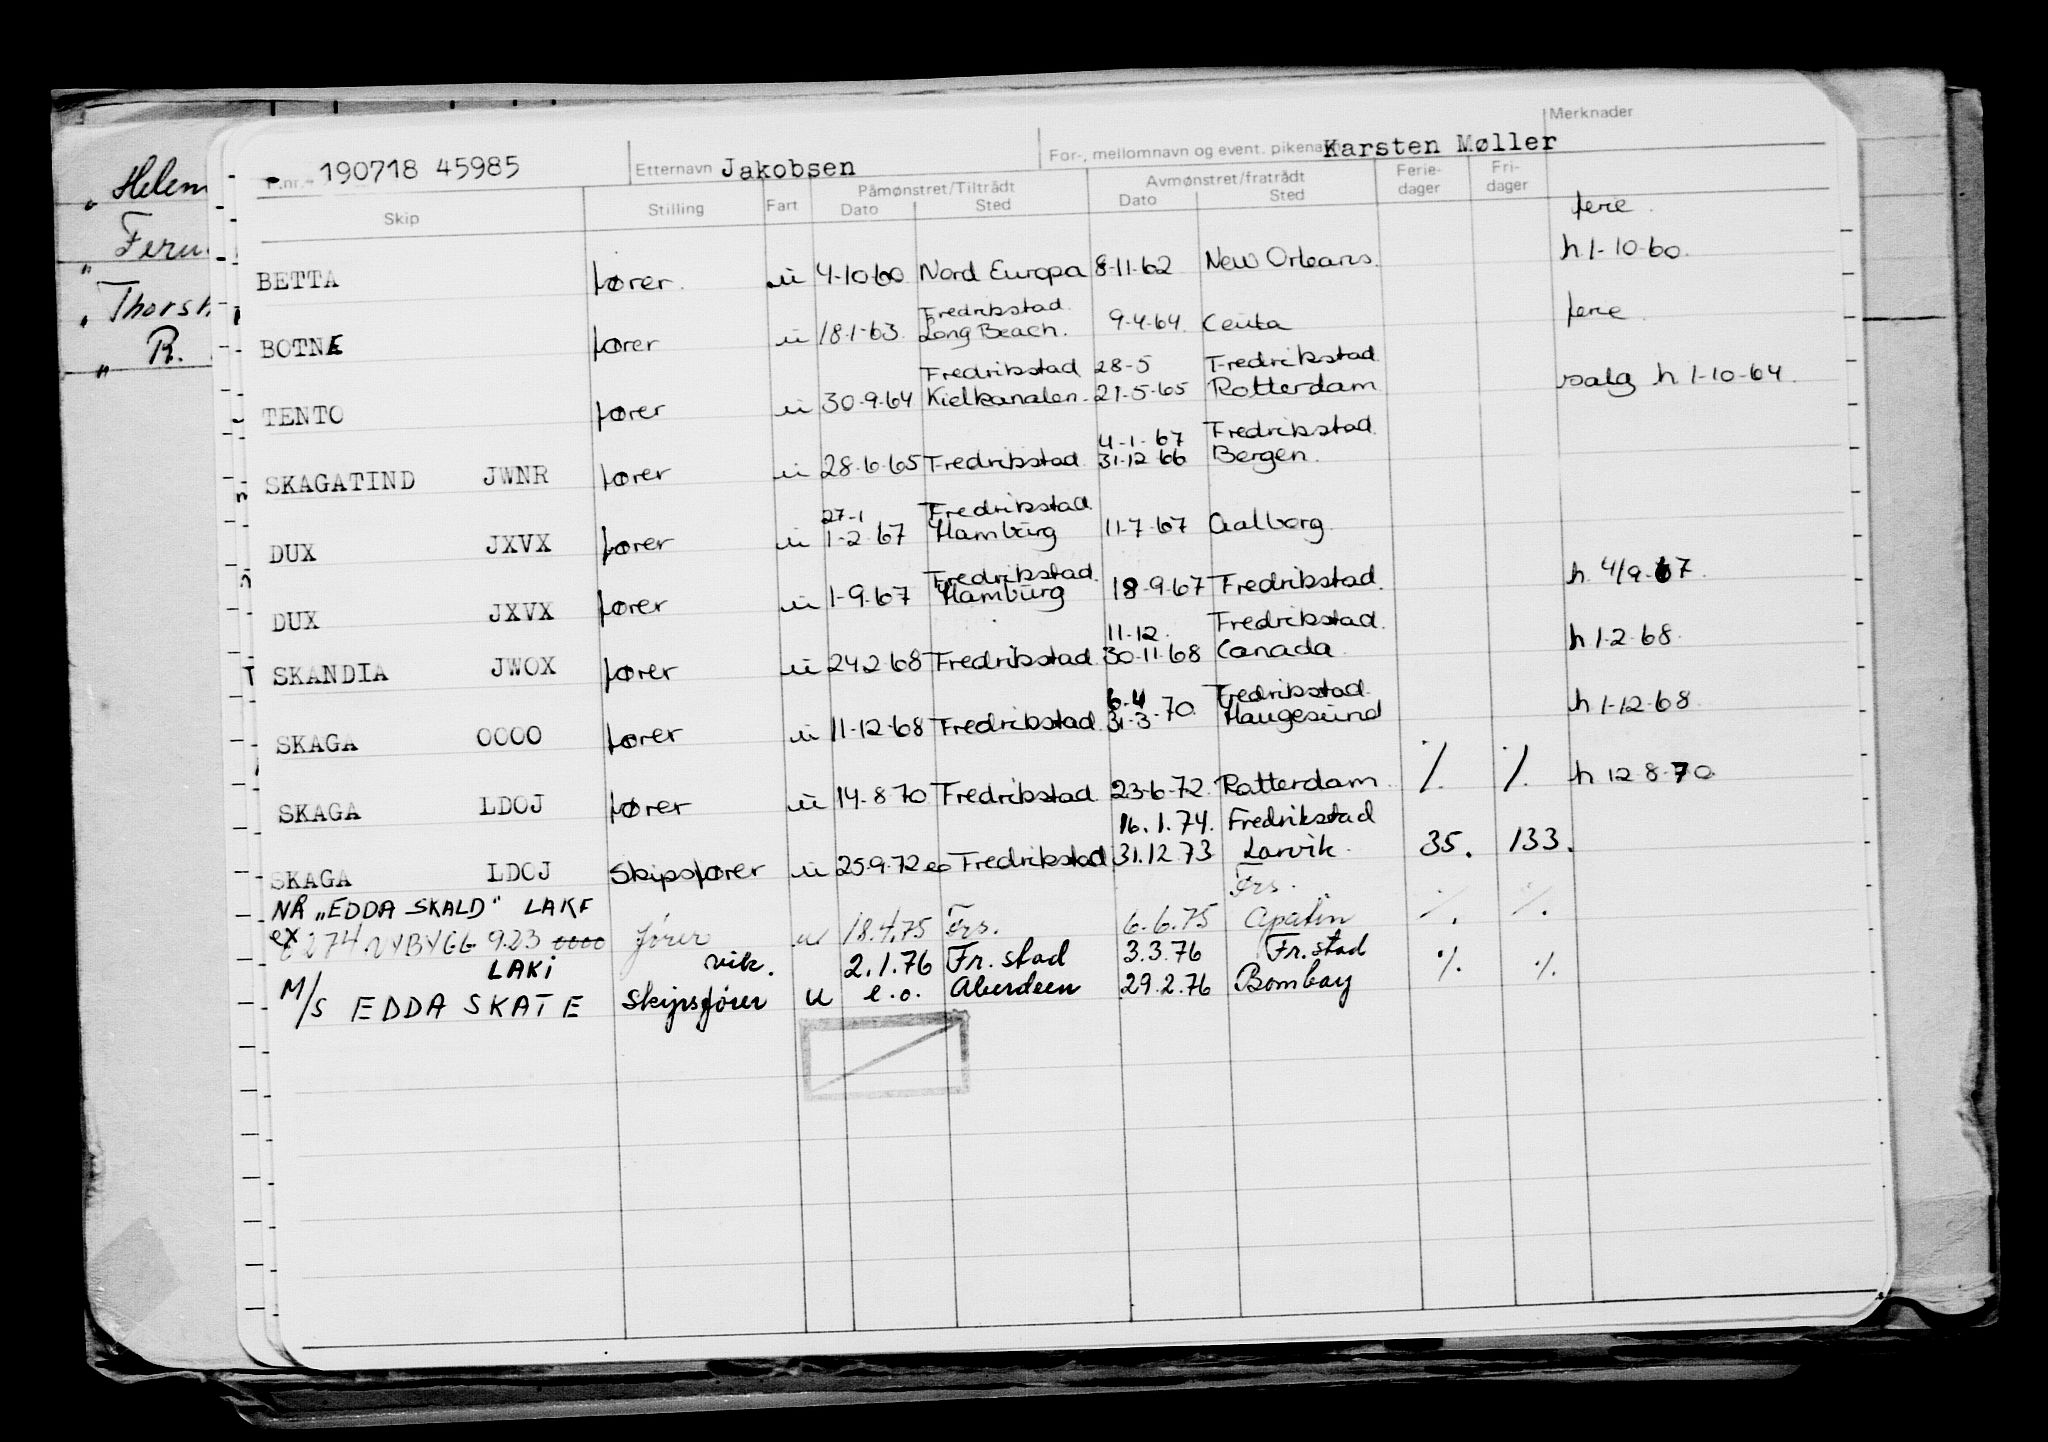 Helem
Feru
Thorsh
R.
Merknader
F.nr. 190718 45985 Etternavn Jakobsen For-, mellomnavn og event. pikenavn Karsten Møller
Skip Stilling Fart Påmønstret/Tiltrådt Dato Sted Avmønstret/fratrådt Dato Sted Ferie-dager Fri-dager
ferie.
BETTA fører. u 4-10-60 Nord Europa 8-11-62 New Orleans. h 1-10-60.
Fredrikstad ferie.
BOTNE fører u 18-1-63. Long Beach. 9-4-64. Ceuta
Fredrikstad 28-5 Fredrikstad
TENTO fører u 30-9-64 Kielkanalen. 21-5-65 Rotterdam salg h 1-10-64.
4-1-67 Fredrikstad.
SKAGATIND JWNR fører u 28-6-65 Fredrikstad 31-12-66 Bergen.
27-1 Fredrikstad
DUX JXVX fører u 1-2-67 Hamburg 11-7-67 Aalborg.
Fredrikstad.
DUX JXVX fører u 1-9-67 Hamburg 18-9-67 Fredrikstad. h 4/9-67.
11-12. Fredrikstad.
SKANDIA JWOX fører u 24-2-68 Fredrikstad 30-11-68 Canada. h 1-2-68.
6-4 Fredrikstad
SKAGA OOOO fører u 11-12-68 Fredrikstad. 31-3-70. Haugesund h 1-12-68
SKAGA LDOJ fører u 14-8-70 Fredrikstad 23-6-72. Rotterdam. ·/. ·/. h 12-8-70
16.1.74. Fredrikstad
SKAGA LDOJ Skipsfører u 25-9-72 eo Fredrikstad 31.12.73 Larvik. 35. 133.
NÅ "EDDA SKALD" LAKF Frs.
ex 274 NYBYGG 923 0000 fører u 18.4.75 Frs. 6.6.75 Apatin ·/. ·/.
LAKI vik. 2.1.76 Fr.stad 3.3.76 Fr.stad ·/. ·/.
M/S EDDA SKATE Skipsfører u e.o. Aberdeen 29.2.76 Bombay